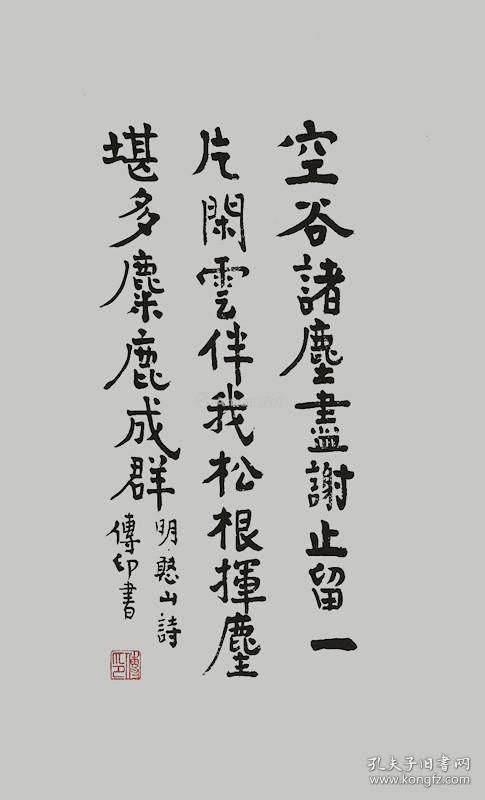 空谷諸塵盡謝止留一
片閑雲伴我松根揮塵
堪多麋鹿成群
明·憨山詩
傳印書
孔夫子旧书网
www.kongfz.com